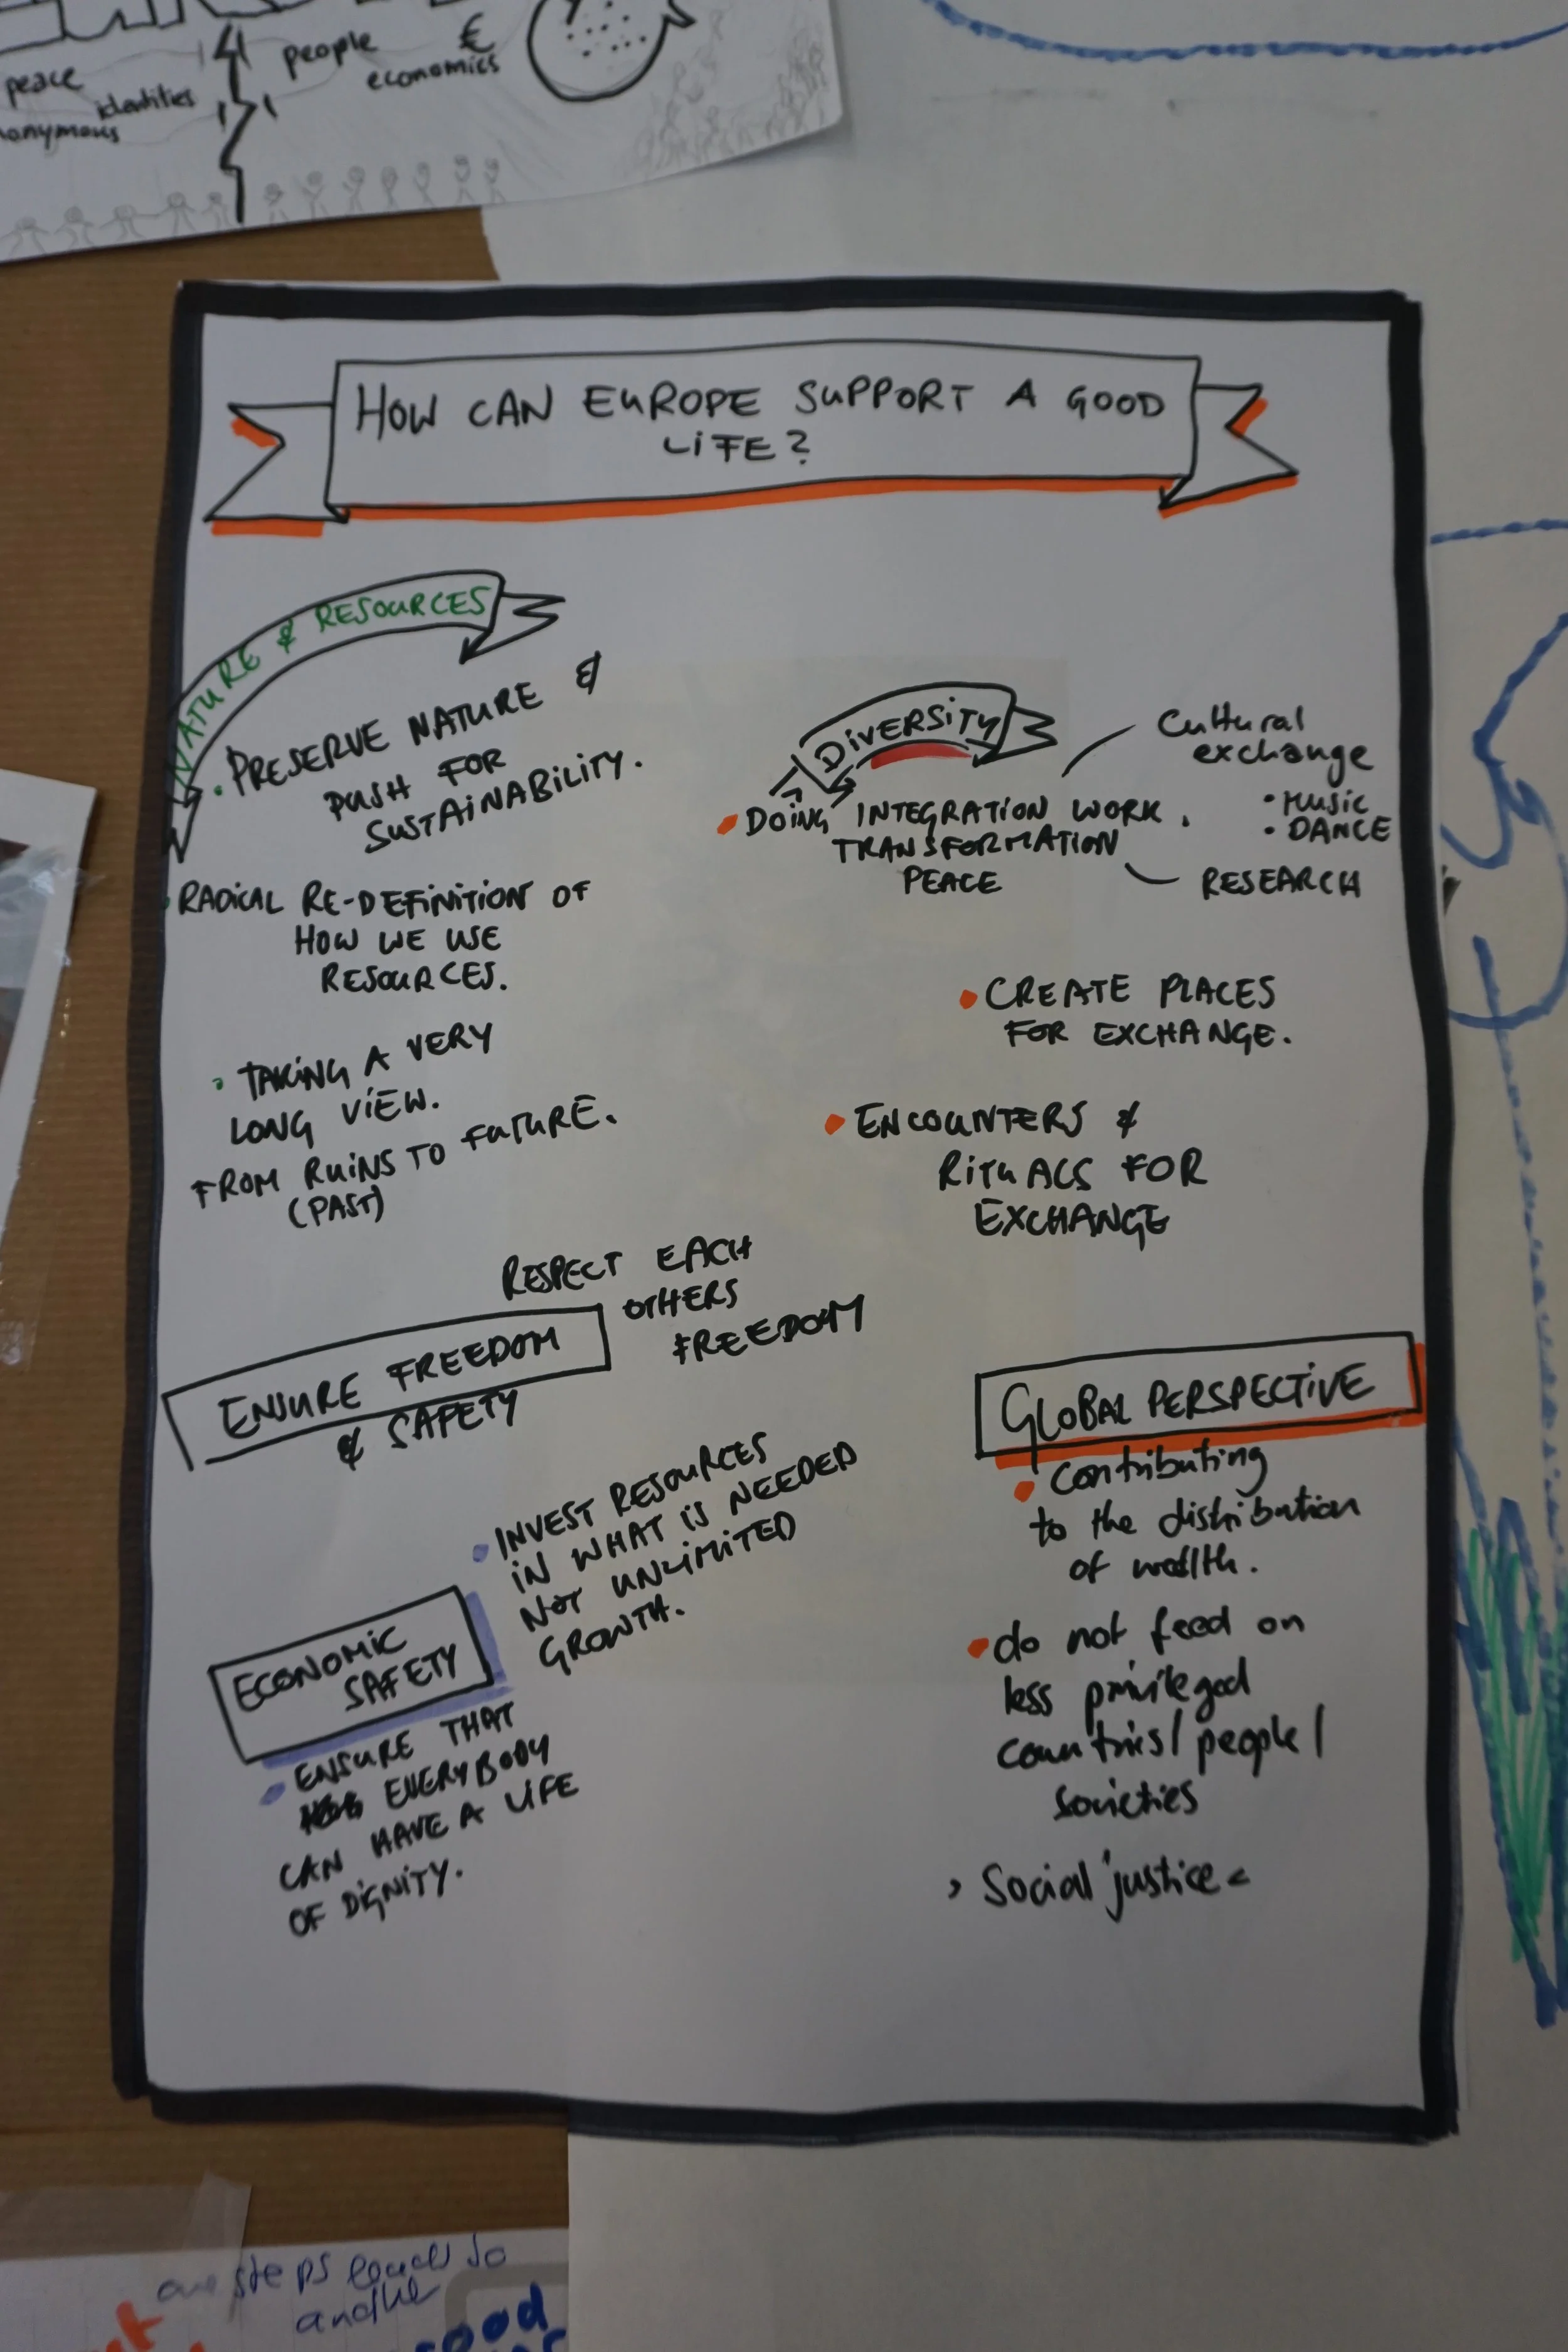 peace
identities
people
€
economics
HOW CAN EUROPE SUPPORT A GOOD
LIFE?
NATURE & RESOURCES
• PRESERVE NATURE &
PUSH FOR
SUSTAINABILITY.
• RADICAL RE-DEFINITION OF
HOW WE USE
RESOURCES.
• TAKING A VERY
LONG VIEW.
FROM RUINS TO FUTURE.
(PAST)
DIVERSITY
• DOING INTEGRATION WORK.
TRANSFORMATION
PEACE
Cultural
exchange
• MUSIC
• DANCE
RESEARCH
• CREATE PLACES
FOR EXCHANGE.
• ENCOUNTERS &
RITUALS FOR
EXCHANGE
RESPECT EACH
OTHERS
FREEDOM
ENSURE FREEDOM
& SAFETY
• INVEST RESOURCES
IN WHAT IS NEEDED
NOT UNLIMITED
GROWTH.
ECONOMIC
SAFETY
• ENSURE THAT
EVERYBODY
CAN HAVE A LIFE
OF DIGNITY.
GLOBAL PERSPECTIVE
• Contributing
to the distribution
of wealth.
• do not feed on
less privileged
countries/ people/
societies
> Social justice <
steps